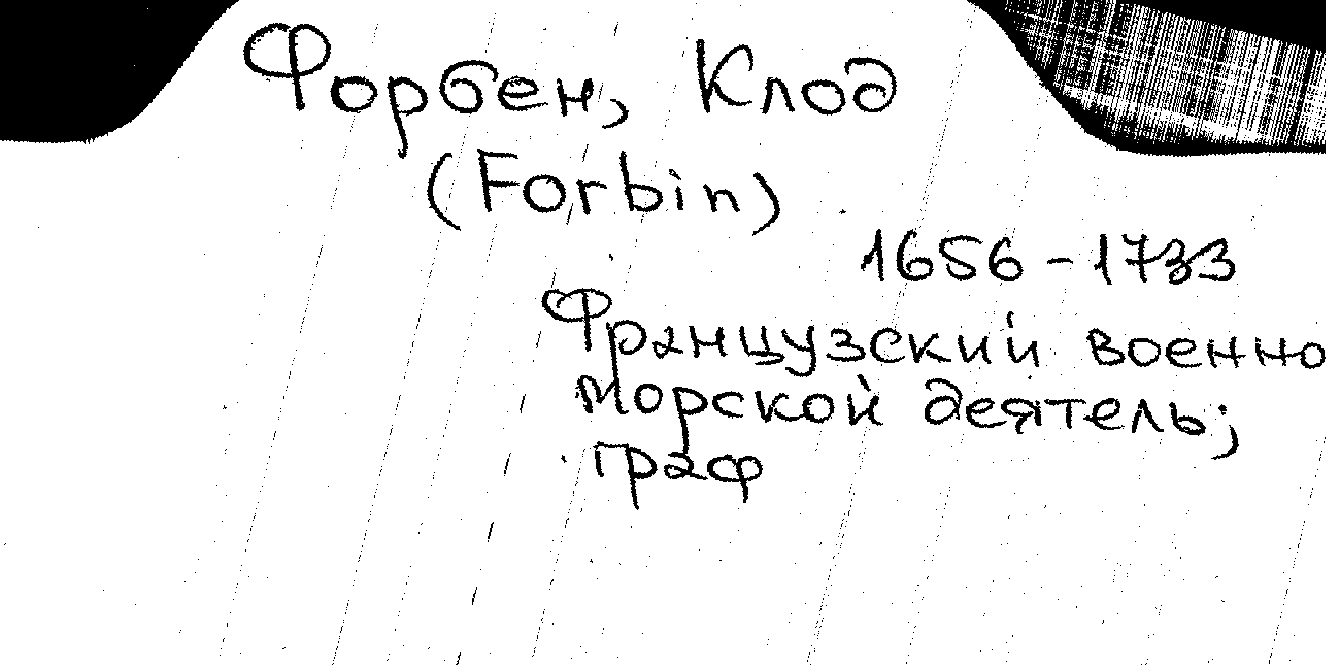 Форбен, Клод
(Forbin)
1656-1733
Французский военно
морской деятель;
граф